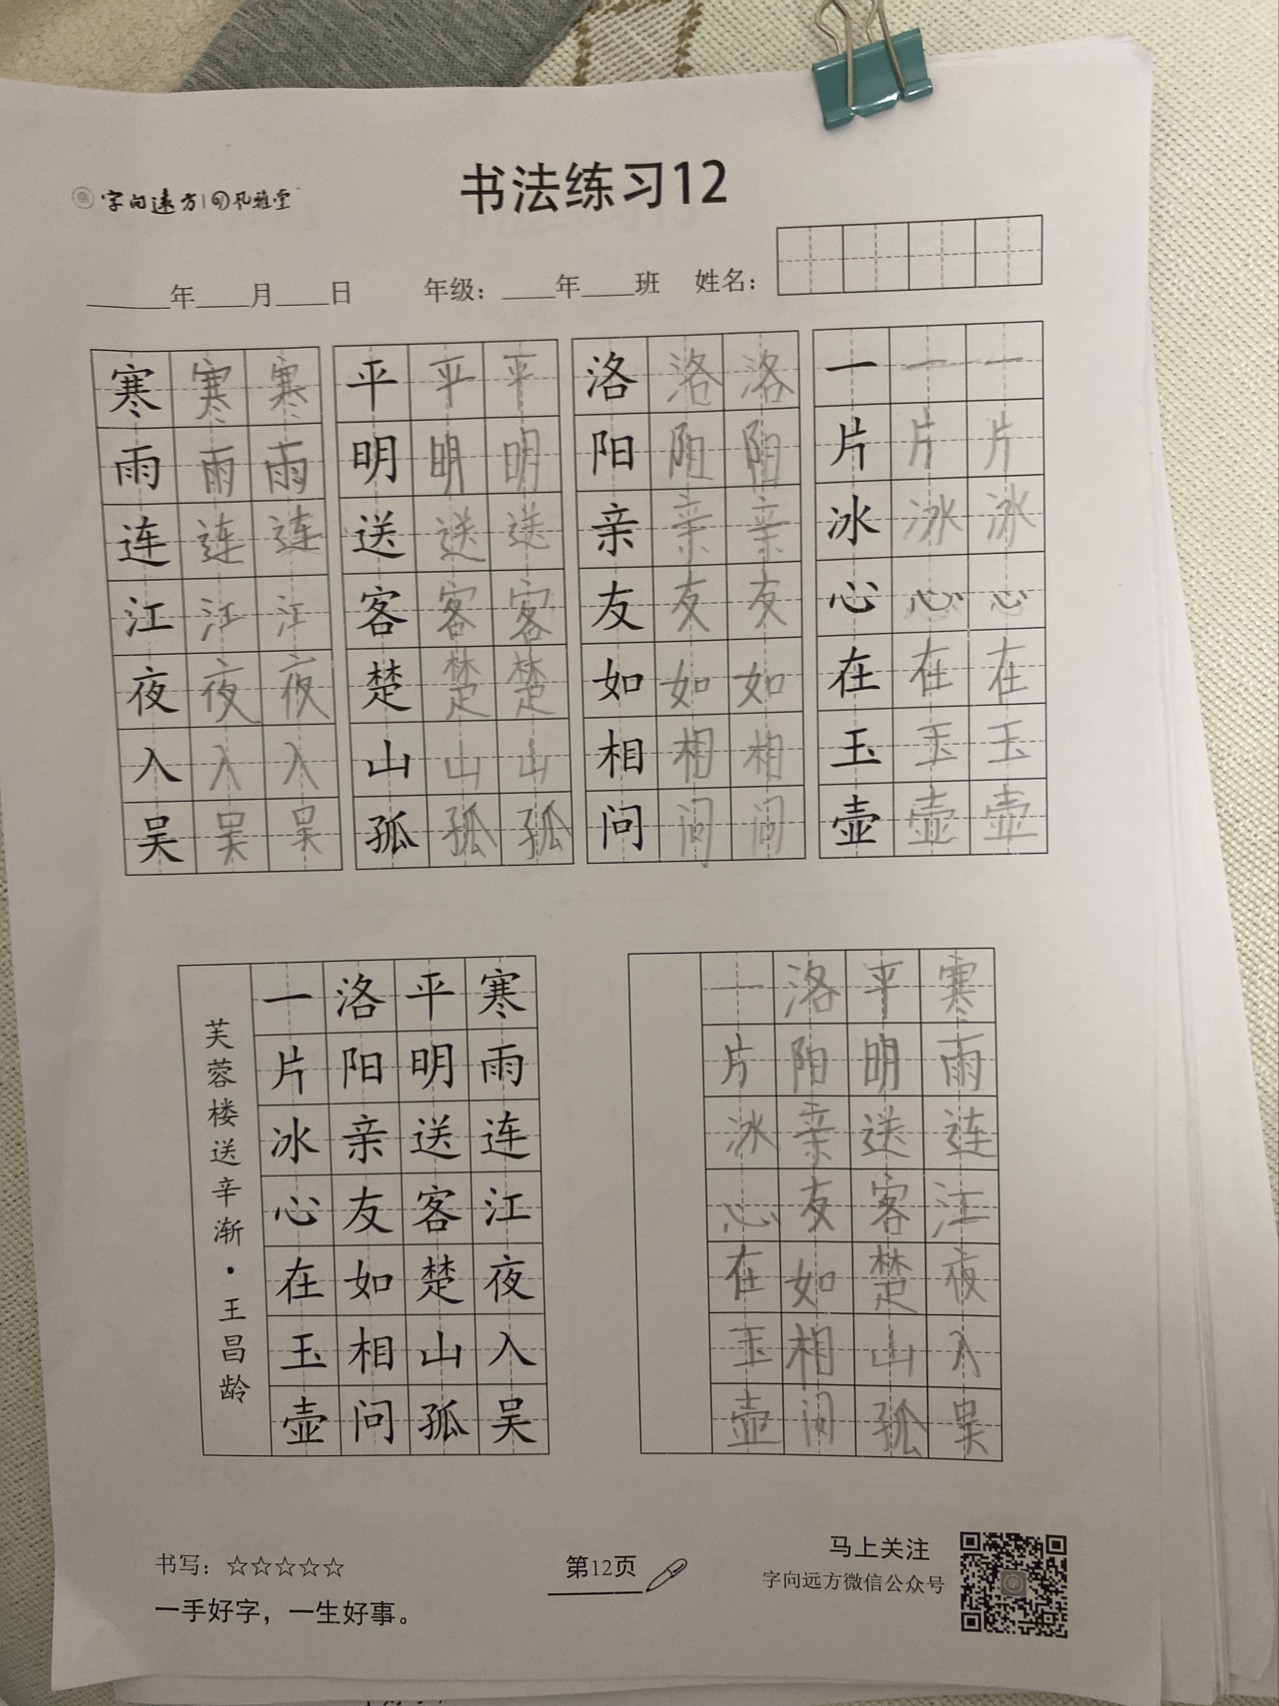 字向远方 | 孔雅堂
书法练习12
______年____月____日 年级：____年____班 姓名：
寒寒寒 平平平 洛洛洛 一一一
雨雨雨 明明明 阳阳阳 片片片
连连连 送送送 亲亲亲 冰冰冰
江江江 客客客 友友友 心心心
夜夜夜 楚楚楚 如如如 在在在
入入入 山山山 相相相 玉玉玉
吴吴吴 孤孤孤 问问问 壶壶壶
寒雨连江夜入吴
平明送客楚山孤
洛阳亲友如相问
一片冰心在玉壶
芙蓉楼送辛渐·王昌龄
寒雨连江夜入吴
平明送客楚山孤
洛阳亲友如相问
一片冰心在玉壶
书写：☆☆☆☆☆
一手好字，一生好事。
第12页
马上关注
字向远方微信公众号